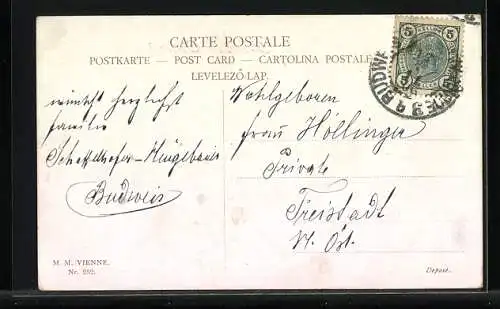 CARTE POSTALE
POSTKARTE — POST CARD — CARTOLINA POSTALE
LEVELEZŐ-LAP.
5 5
BUDWEIS
wünscht herzlichst
Familie
Budweis
Wohlgeboren
Frau Höllinger
Private
Freistadt
N. Öst.
M. M. VIENNE.
Nr. 252.
Depost.